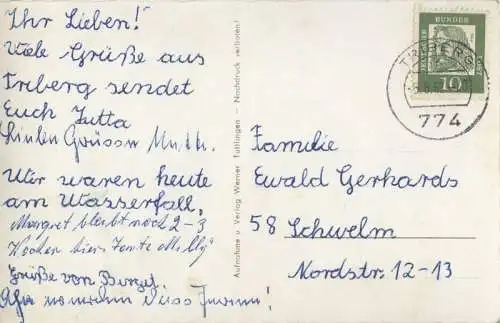 Ihr Lieben!
Viele Grüße aus
Triberg sendet
Euch Jutta
Wir waren heute
am Wasserfall,
Margret bleibt noch 2-3
Wochen hier. Tante Milly
Grüße von
Aufnahme u. Verlag Werner Tuttlingen - Nachdruck verboten!
DEUTSCHE BUNDESPOST
10
TRIBERG
774
Familie
Ewald Gerhards
58 Schwelm
Nordstr. 12-13